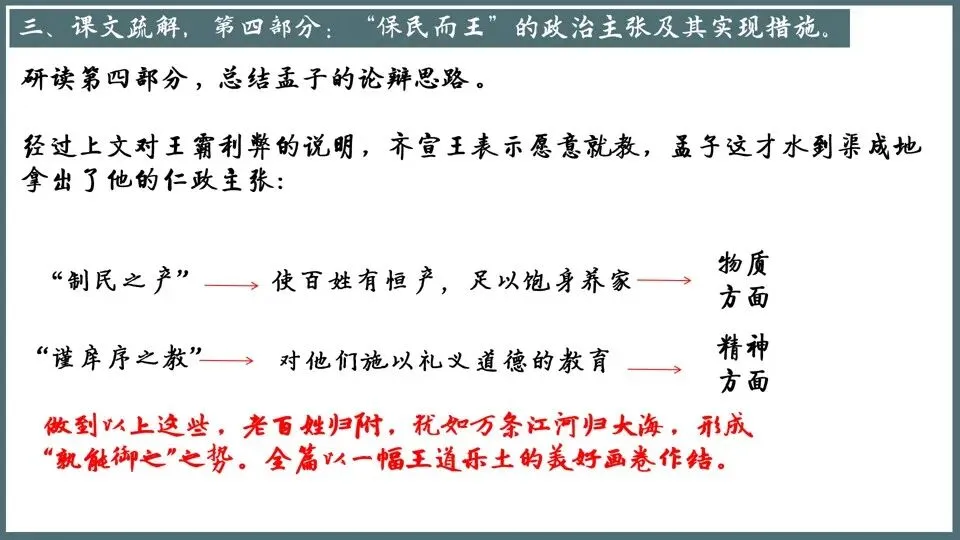 三、课文疏解，第四部分：“保民而王”的政治主张及其实现措施。
研读第四部分，总结孟子的论辩思路。
经过上文对王霸利弊的说明，齐宣王表示愿意就教，孟子这才水到渠成地
拿出了他的仁政主张：
“制民之产” 使百姓有恒产，足以饱身养家 物质
方面
“谨庠序之教” 对他们施以礼义道德的教育 精神
方面
做到以上这些，老百姓归附，犹如万条江河归大海，形成
“孰能御之”之势。全篇以一幅王道乐土的美好画卷作结。